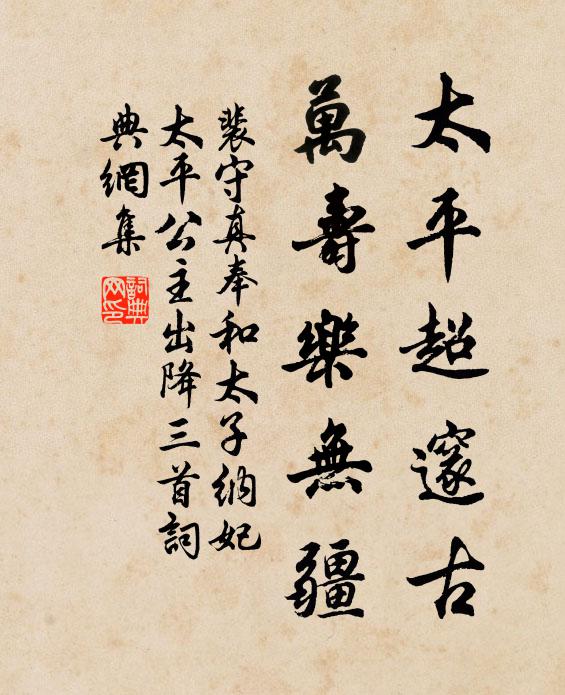 太平超邃古
萬壽樂無疆
裴守真奉和太子納妃
太平公主出降三首詞
典網集
詞典網印